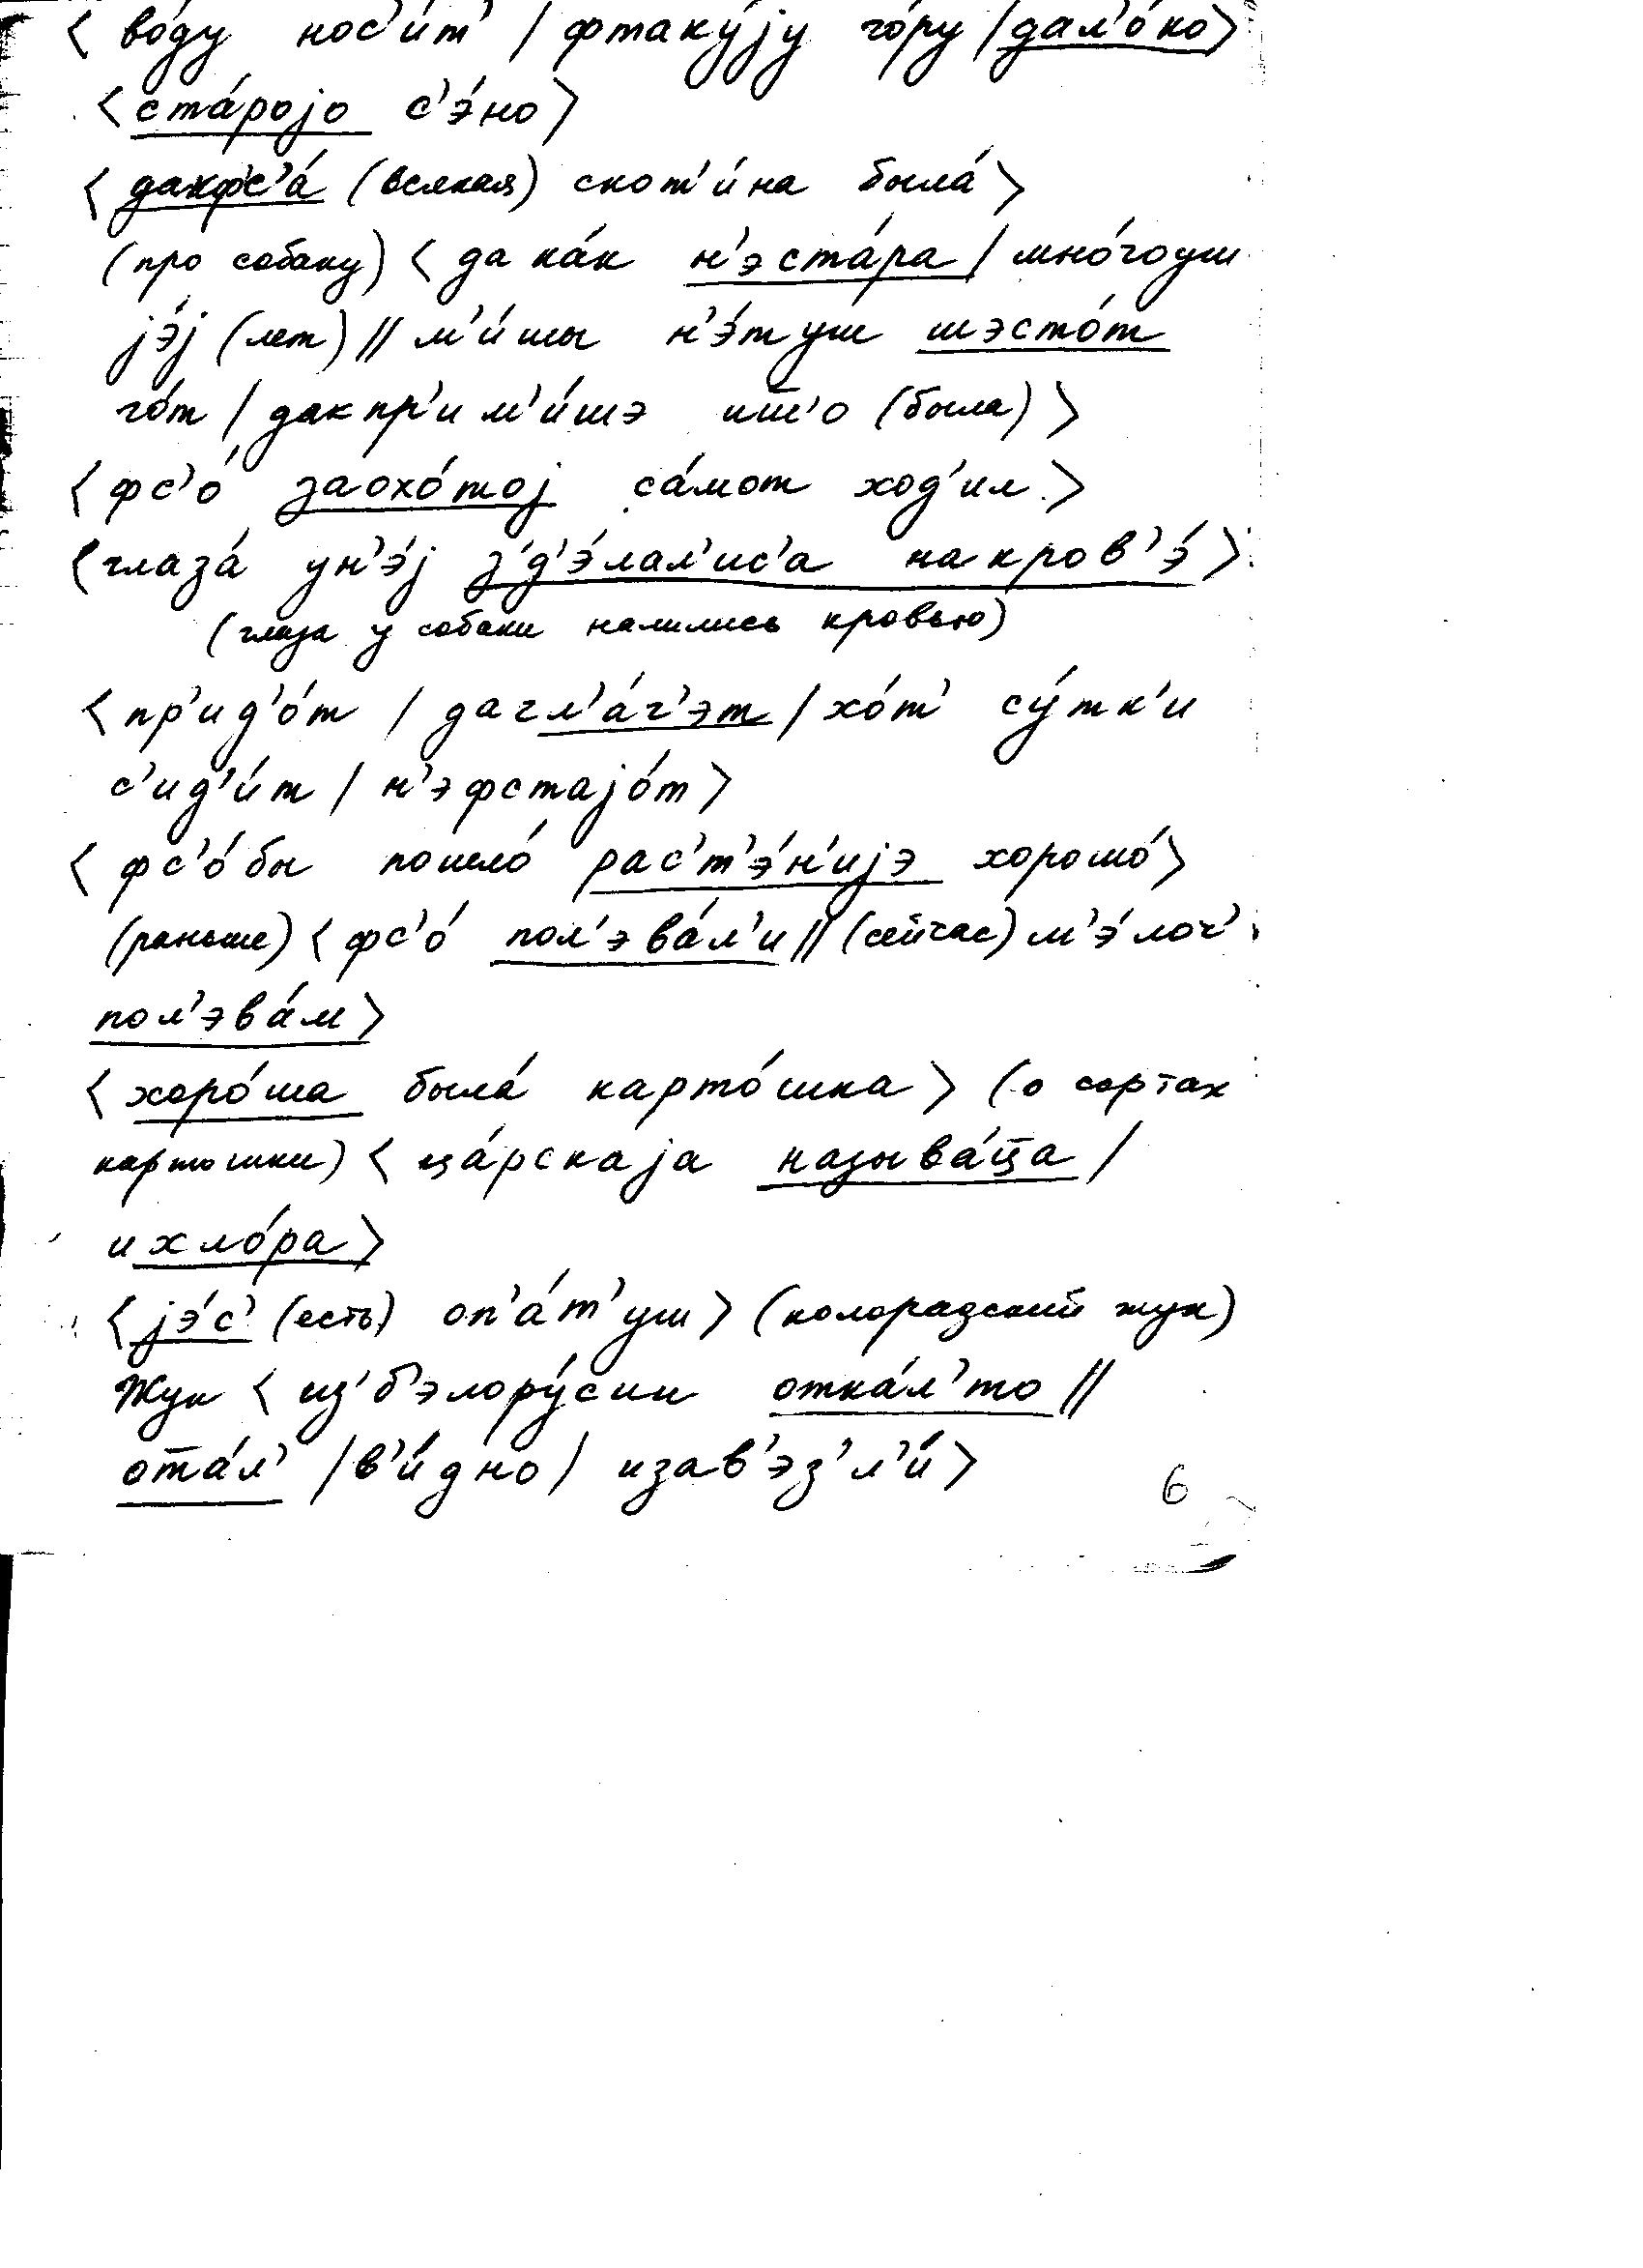 < во́ду нос'и́т' / фтаку́jу го́ру / дал'о́ко >
< ста́роjо с'э́но >
< дакфс'а́ (всякая) скот'и́на была́ >
(про собаку) < да ка́к н'эста́ра / мно́гоуш
jэ́j (лет) // м'и́шы н'э́туш шэсто́т
го́т / дакпр'им'и́шэ иш̅'о (была) >
< фс'о́ заохо́тоj са́мот ход'ил >
< глаза́ ун'э́j з'д'э́лал'ис'а накров'э́ >
(глаза у собаки налились кровью)
< пр'ид'о́т / дагл'а́г'эт / хо́т' су́тк'и
с'ид'и́т / н'эфстаjо́т >
< фс'о́бы пошло́ рас'т'э́н'иjэ хорошо́ >
(раньше) < фс'о́ пол'эва́л'и // (сейчас) м'э́лоч'
пол'эва́м >
< хоро́ша была́ карто́шка > (о сортах
картошки) < ца́рскаjа называ́ц̅а /
ихло́ра >
< jэ́с' (есть) оп'а́т'уш > (колорадский жук)
Жук < из'б'элору́сии отка́л'то //
от̅а́л' / в'и́дно / изав'эз'л'и́ >
6